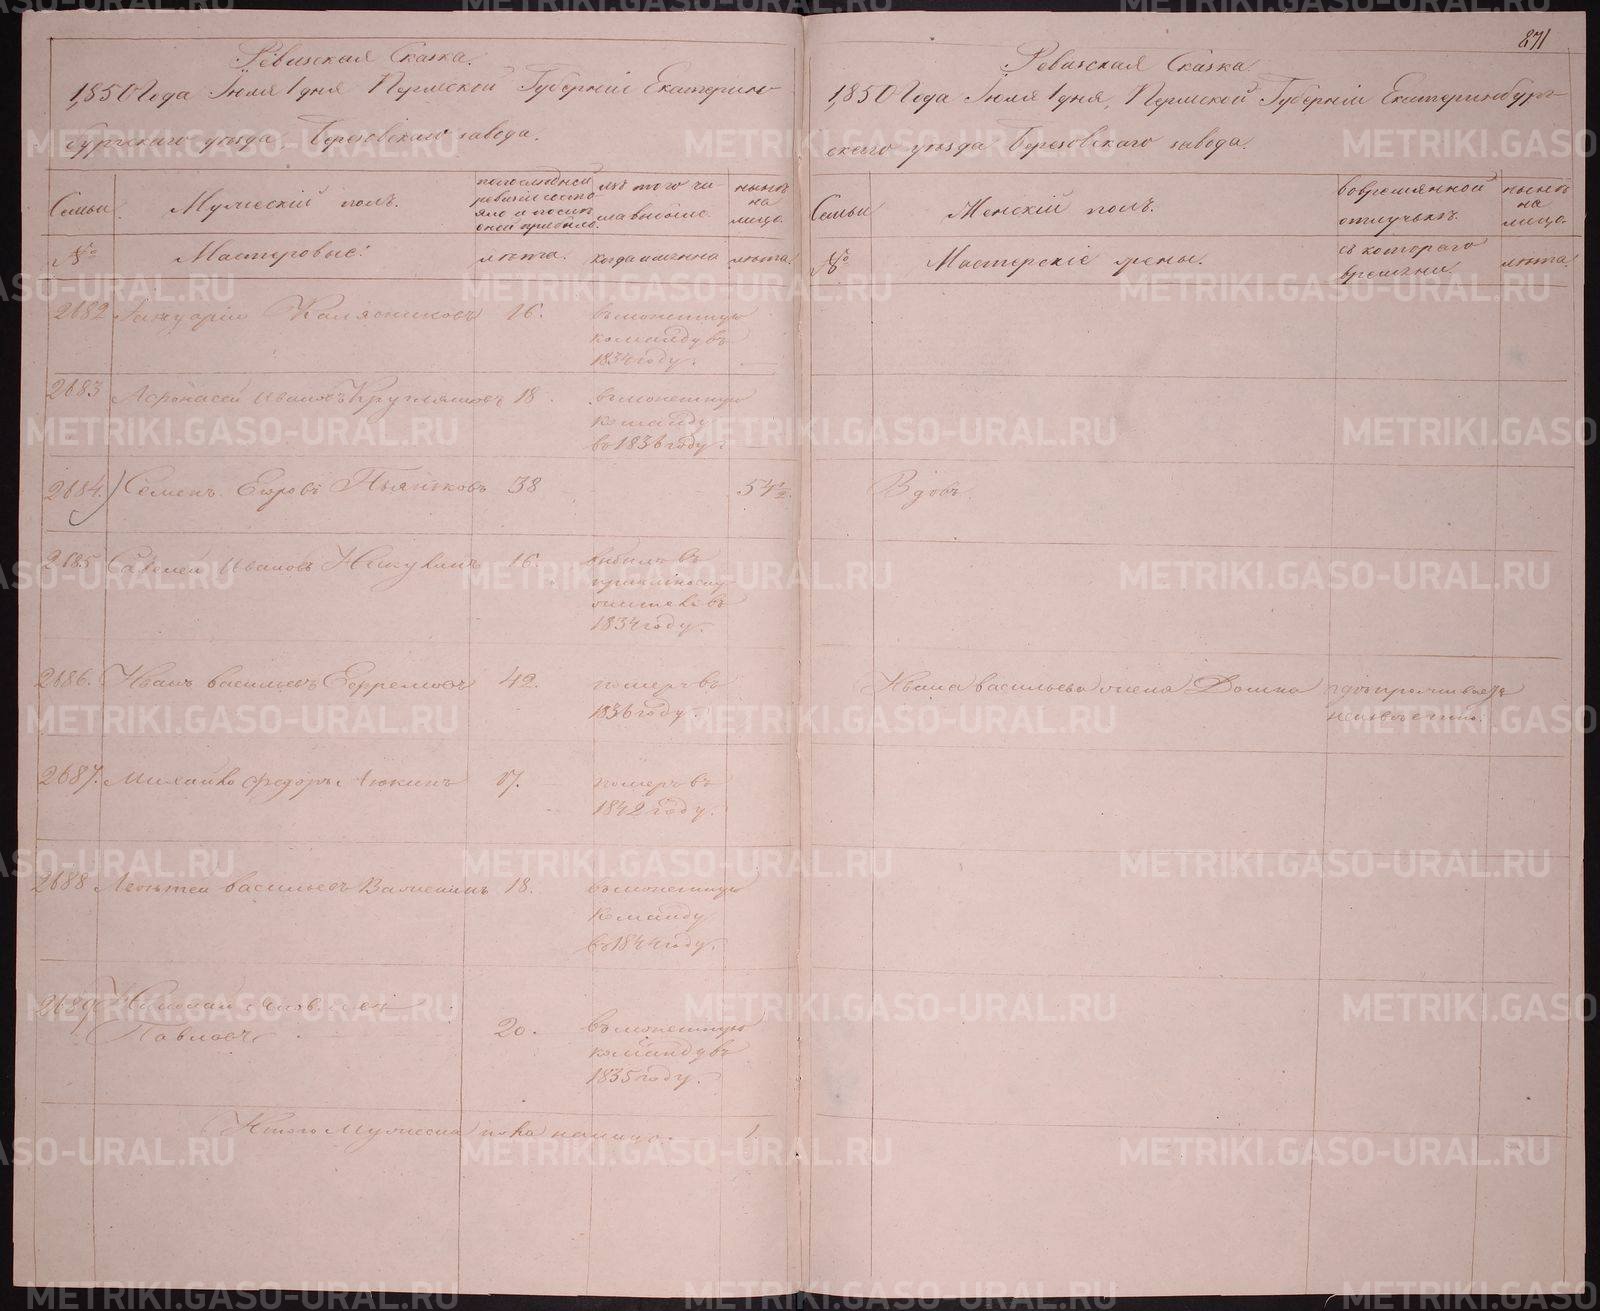 871
Ревизская Сказка.
1850 Года Іюля 1 дня Пермской Губерніи Екатерин-
бургскаго уѣзда, Березовскаго завода.
Семьи
Мужескій полъ.
по последней
ревизіи состо-
яло и после
оной прибыло.
изъ того чи-
сла выбыло
нынѣ
на
лицо.
№
Мастеровые:
лѣта.
когда именно
лѣта.
2682 Іануарій Калясниковъ 16.
въ монетную
команду въ
1834 году.
2683 Афонасей Ивановъ Кругляшовъ 18.
въ монетную
команду
въ 1836 году.
2684. Семенъ Егоровъ Пьянковъ 38
54½.
2685 Савелей Ивановъ 16.
выбылъ въ
1834 году.
2686. Иванъ Васильевъ Ефремовъ 42.
померъ въ
1836 году.
2687. Михайло Федоровъ 17.
померъ въ
1842 году.
2688 Леонтей Васильевъ 18.
въ монетную
команду
въ 1844 году.
2689 Николай Яковлевъ
Павловъ 20.
въ монетную
команду въ
1835 году.
Итого Мужеска пола налицо. 1.
Ревизская Сказка.
1850 Года Іюля 1 дня, Пермской Губерніи Екатеринбург-
скаго уѣзда Березовскаго завода.
Семьи
Женскій полъ.
во временной
отлучкѣ.
нынѣ
на
лицо.
№
Мастерскіе жены.
съ котораго
времени.
лѣта.
Вдовъ.
Ивана Васильева жена Домна гдѣ проживаетъ
неизвестно.
METRIKI.GASO-URAL.RU